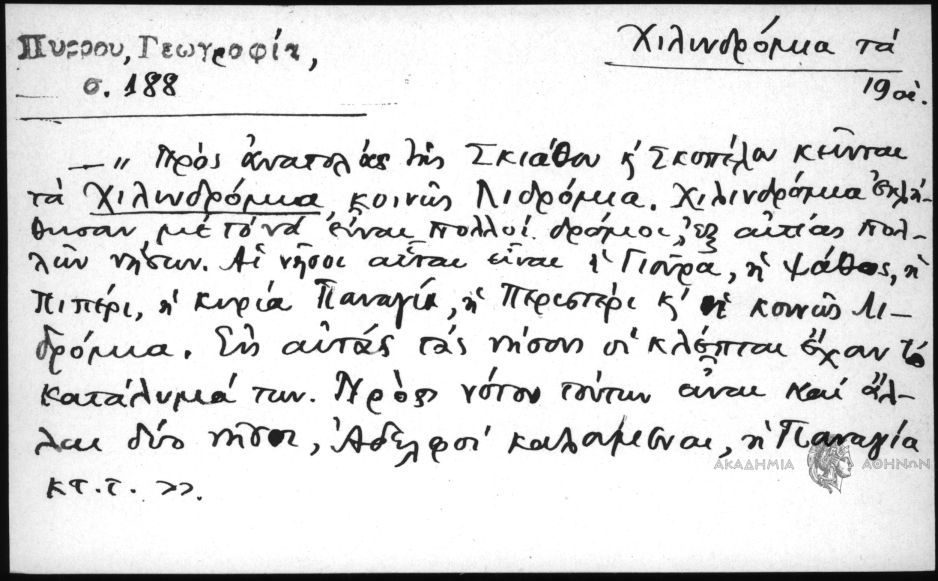 Πυρρου, Γεωγραφία,
σ. 188
Χιλινδρόμια τά
19 αἰ.
— " Πρὸς ἀνατολὰς τῆς Σκιάθου κ' Σκοπέλου κεῖνται
τὰ Χιλινδρόμια, κοινῶς Λιδρόμια. Χιλινδρόμια ἐκλή-
θησαν μὲ τὸ νὰ εἶναι πολλοί δρόμοι, ἐξ αἰτίας πολ-
λῶν νήσων. Αἱ νῆσοι αὗται εἶναι ἡ Γιοῦρα, ἡ Ψάθος, ἡ
Πιπέρι, ἡ Κυρία Παναγία, ἡ Περιστέρι κ' ἡ κοινῶς Λι-
δρόμια. Εἰς αὐτάς τάς νήσους οἱ κλέπται ἔχουν τὸ
κατάλυμά των. Πρὸς νότον τούτων εἶναι καί ἄλ-
λαι δύο νῆσοι, Ἀδελφοί καλούμεναι, ἡ Παναγία
κτ.τ. >>.
ΑΚΑΔΗΜΙΑ ΑΘΗΝΩΝ